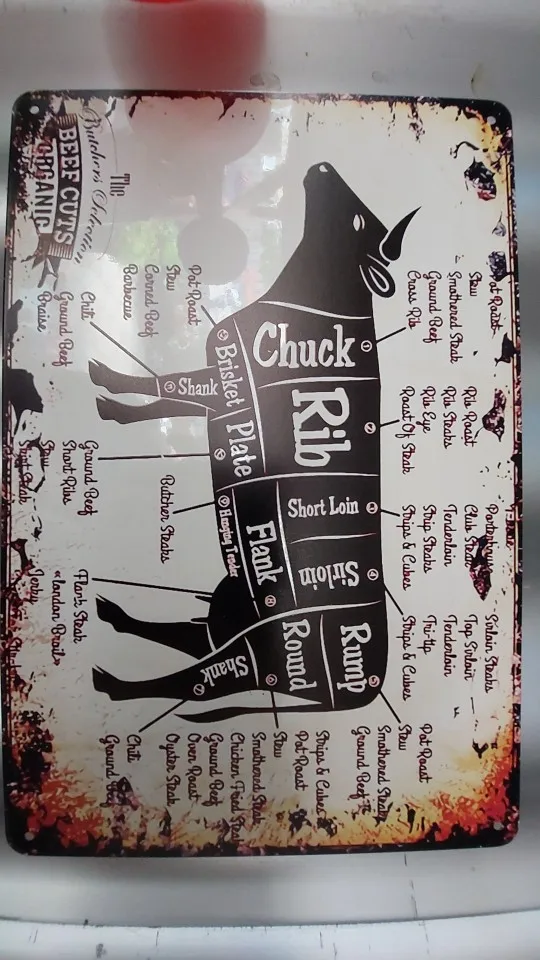 The
Butcher's Selection
BEEF CUTS
ORGANIC
Pot Roast
Stew
Smothered Steak
Ground Beef
Cross Rib
Rib Roast
Rib Steaks
Rib Eye
Roast Of Steak
Club Steak
Tenderloin
Strip Steaks
Strips & Cubes
Sirloin Steaks
Top Sirloin
Tenderloin
Tri-tip
Strips & Cubes
Pot Roast
Stew
Smothered Steak
Ground Beef
Chuck
1
Rib
2
Short Loin
3
Sirloin
4
Rump
5
Round
6
Shank
7
Flank
8
Hanging Tender
Plate
Brisket
Shank
Pot Roast
Stew
Corned Beef
Barbecue
Chili
Ground Beef
Braise
Ground Beef
Short Ribs
Stew
Butcher Steaks
Flank Steak
«London Broil»
Jerky
Strips & Cubes
Pot Roast
Stew
Smothered Steak
Chicken Fried Steak
Ground Beef
Oven Roast
Oyster Steak
Chili
Ground Beef